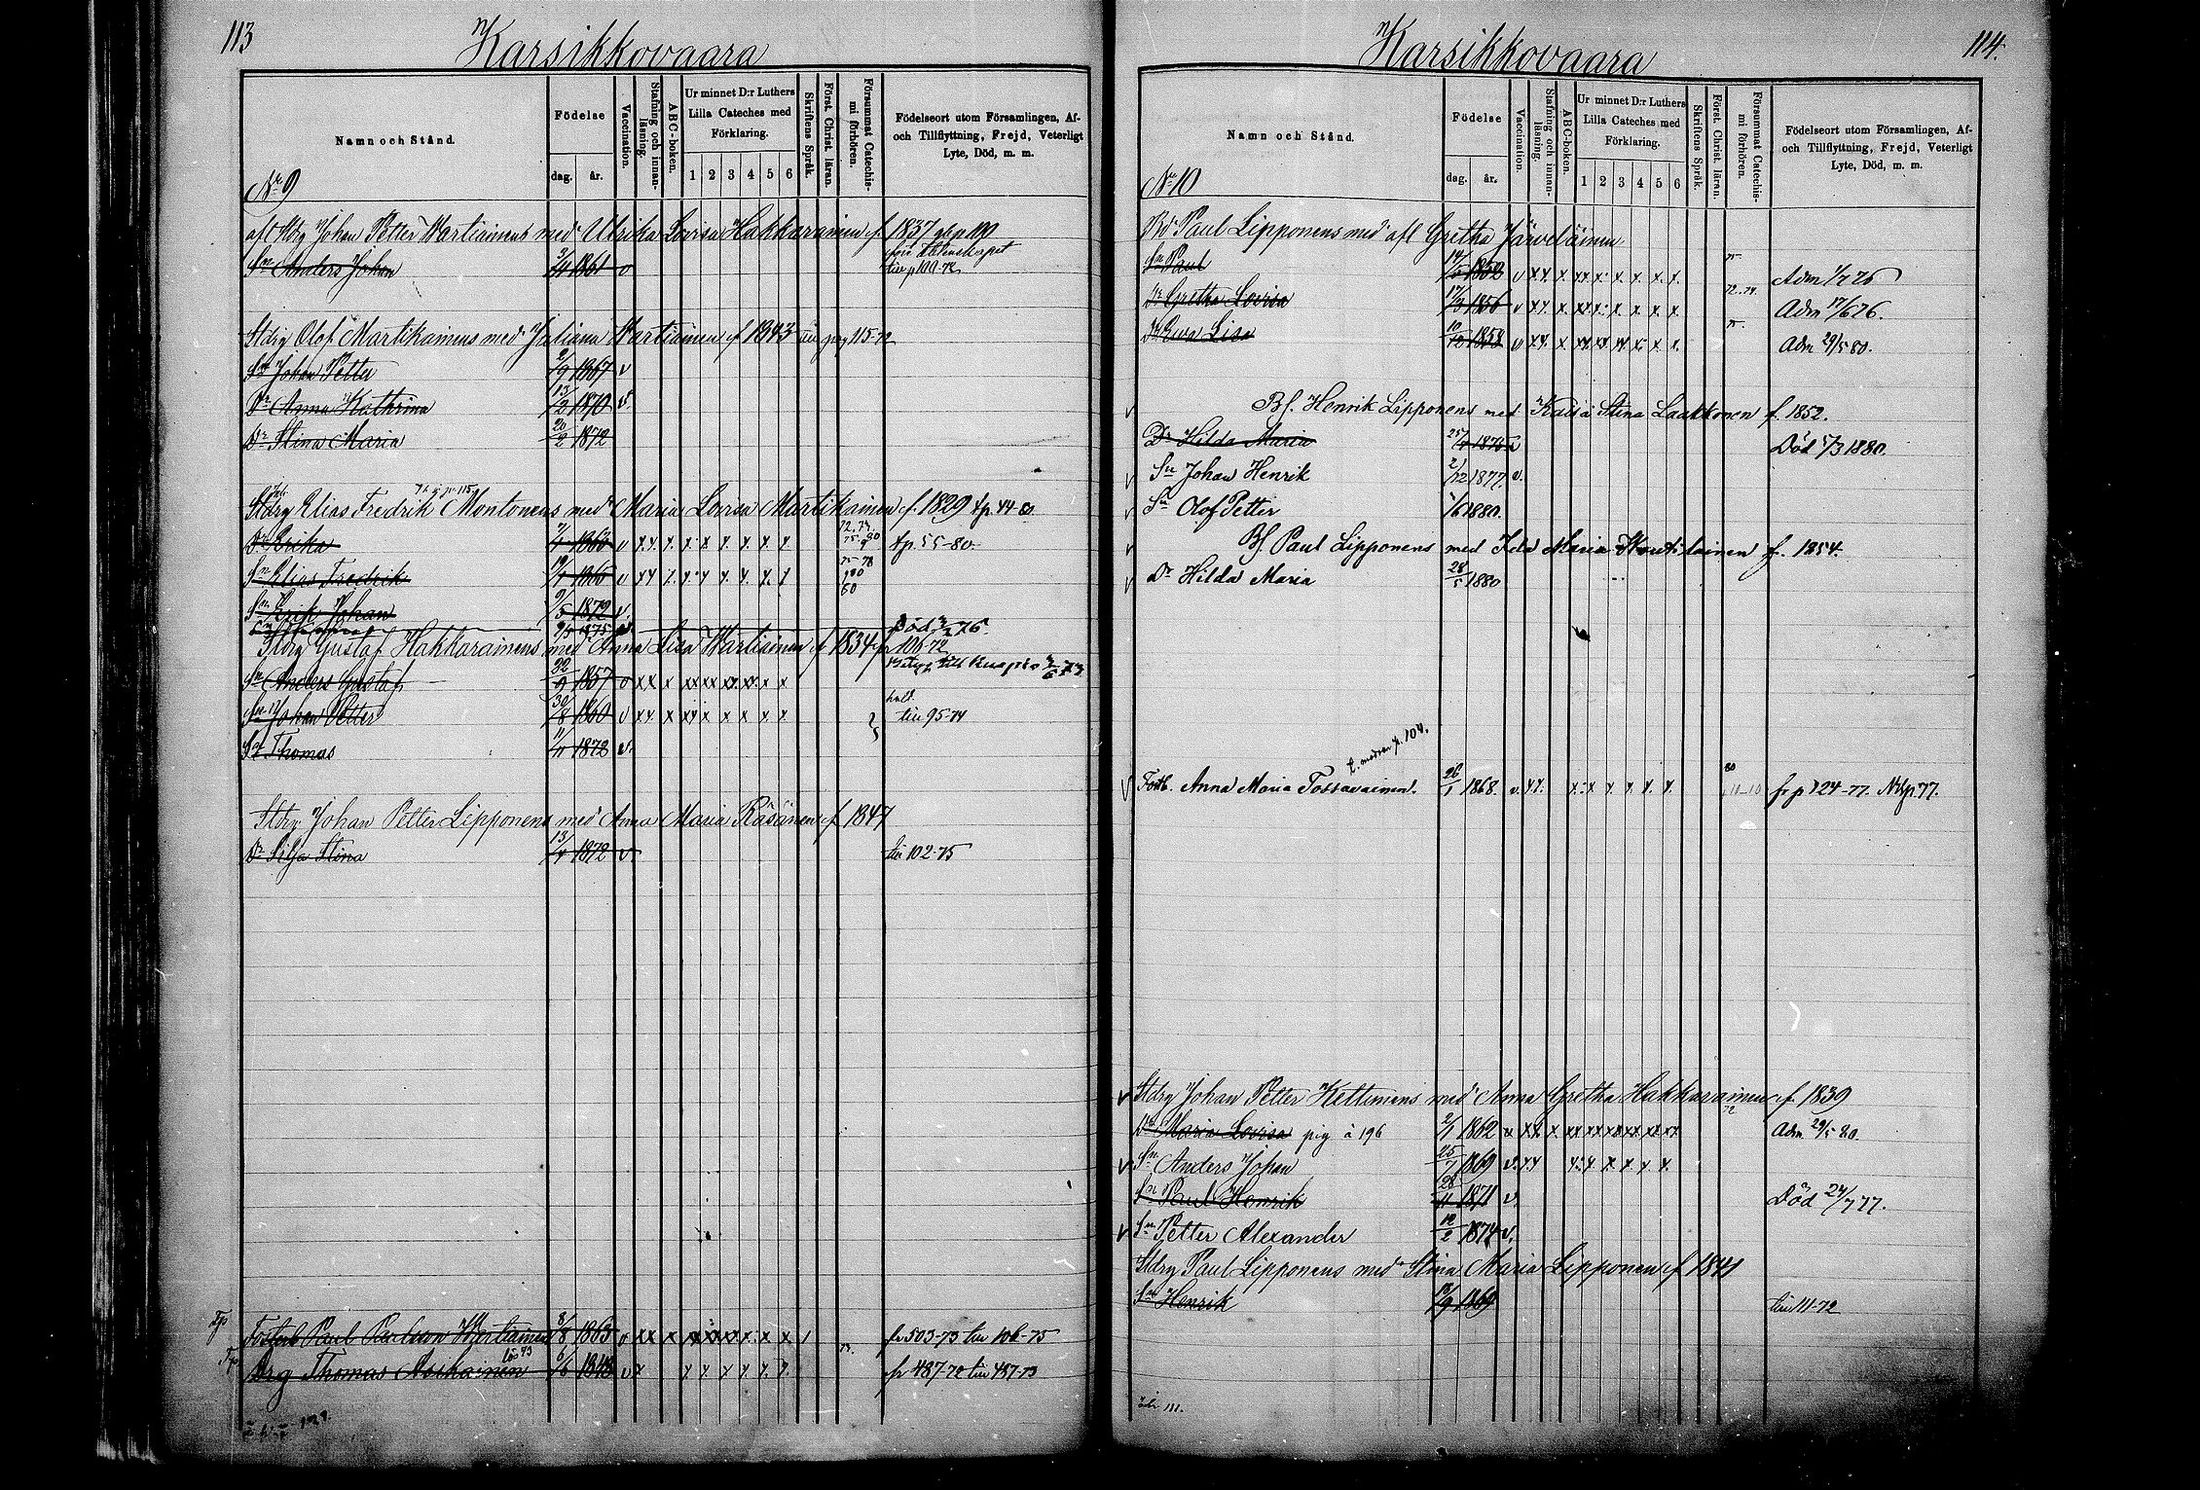 113
Karsikkovaara
Namn och Stånd.
Födelse
dag.
år.
Vaccination.
Stafning och innan-läsning.
ABC-boken.
Ur minnet D:r Luthers Lilla Cateches med Förklaring.
1 2 3 4 5 6
Skriftens Språk.
Först. Christ. läran.
Försummat Catechis-mi förhören.
Födelseort utom Församlingen, Af- och Tillflyttning, Frejd, Veterligt Lyte, Död, m. m.
No 9
Johan Petter Wartiainens med Ulrika Lovisa Hakkarainen f. 1837
Sn Anders Johan 1861 v
Stdrg Olof Martikainens med Juliana Wartiainen f 1843 115-72
Sn Johan Petter 2/9 1867 v
Dr Anna Kathrina 13/2 1870 v.
Dr Stina Maria 20/2 1872
Stdrg Elias Fredrik Montonens med Maria Lovisa Martikainen f. 1829 fp. 44-80
Dr Erika v x.x. x. x x x. x. x. x fp. 55-80.
Sn Elias Fredrik v x x x. x. x x. x. x. x 75-78
Sn Erik Johan 9/5 1872 v.
9/5 1875 Död 76.
Stdrg Gustaf Hakkarainens med Anna Lisa Wartiainen f 1834 106-72
Sn Anders Gustaf 22/9 1857 v xx x xx xx xx xx x x
Sn Johan Petter 30/8 1860 v xx x xx x x x x x tin 95-74
Sn Thomas 11/11 1872 v.
Stdrg Johan Petter Lipponens med Anna Maria Räsänen f 1847
Dr Silja Stina 13/4 1872 v tin 102-75
Fosterb Paul Wartiainen 3/8 1863 v xx x fr 503-73 tin 106-75
Drg Thomas 6/6 1848 v x x x. x x. x. x. fr 487-72 tin 487-73
114.
Karsikkovaara
Namn och Stånd.
Födelse
dag.
år.
Vaccination.
Stafning och innan-läsning.
ABC-boken.
Ur minnet D:r Luthers Lilla Cateches med Förklaring.
1 2 3 4 5 6
Skriftens Språk.
Först. Christ. läran.
Försummat Catechis-mi förhören.
Födelseort utom Församlingen, Af- och Tillflyttning, Frejd, Veterligt Lyte, Död, m. m.
No 10
Paul Lipponens med afl Gretha Järveläinen
Sn Paul 1852 v x x. x xx x. x. x. x. x. 75 Adm 1/7 76
Dr Gretha Lovisa 17/3 1856 v x x. x xx x. x. x. x. x. 72.74. Adm 17/6 76.
Dr Ewa Lisa v x x. x xx xx xx x. x. x. 75. Adm 29/5 80.
Bf. Henrik Lipponens med Kaisa Stina Laakkonen f. 1852.
Dr Hilda Maria v Död 5/3 1880.
Sn Johan Henrik 2/12 1877. v.
Sn Olof Petter 1880.
Bf. Paul Lipponens med Ida Maria f. 1854.
Dr Hilda Maria 28/5 1880
p. 104.
Fostb. Anna Maria Tossavainen. 26/1 1868. v. x x. x. x x x. x. x 80 fr p 124-77. Ntlgp. 77.
Stdrg Johan Petter Kettunens med Anna Gretha Hakkarainen f. 1839
Dr Maria Lovisa pig å 196 2/1 1862 v xx x xx xx xx xx xx xx Adm 29/5 80.
Sn Anders Johan 25/7 1869 v. x x x. x x. x x x.
Sn Paul Henrik 28/11 1871 v. Död 24/7 77.
Sn Petter Alexander 12/2 1874 v.
Stdrg Paul Lipponens med Stina Maria Lipponen f 1841
Sn Henrik 1869 tin 111-72
111.